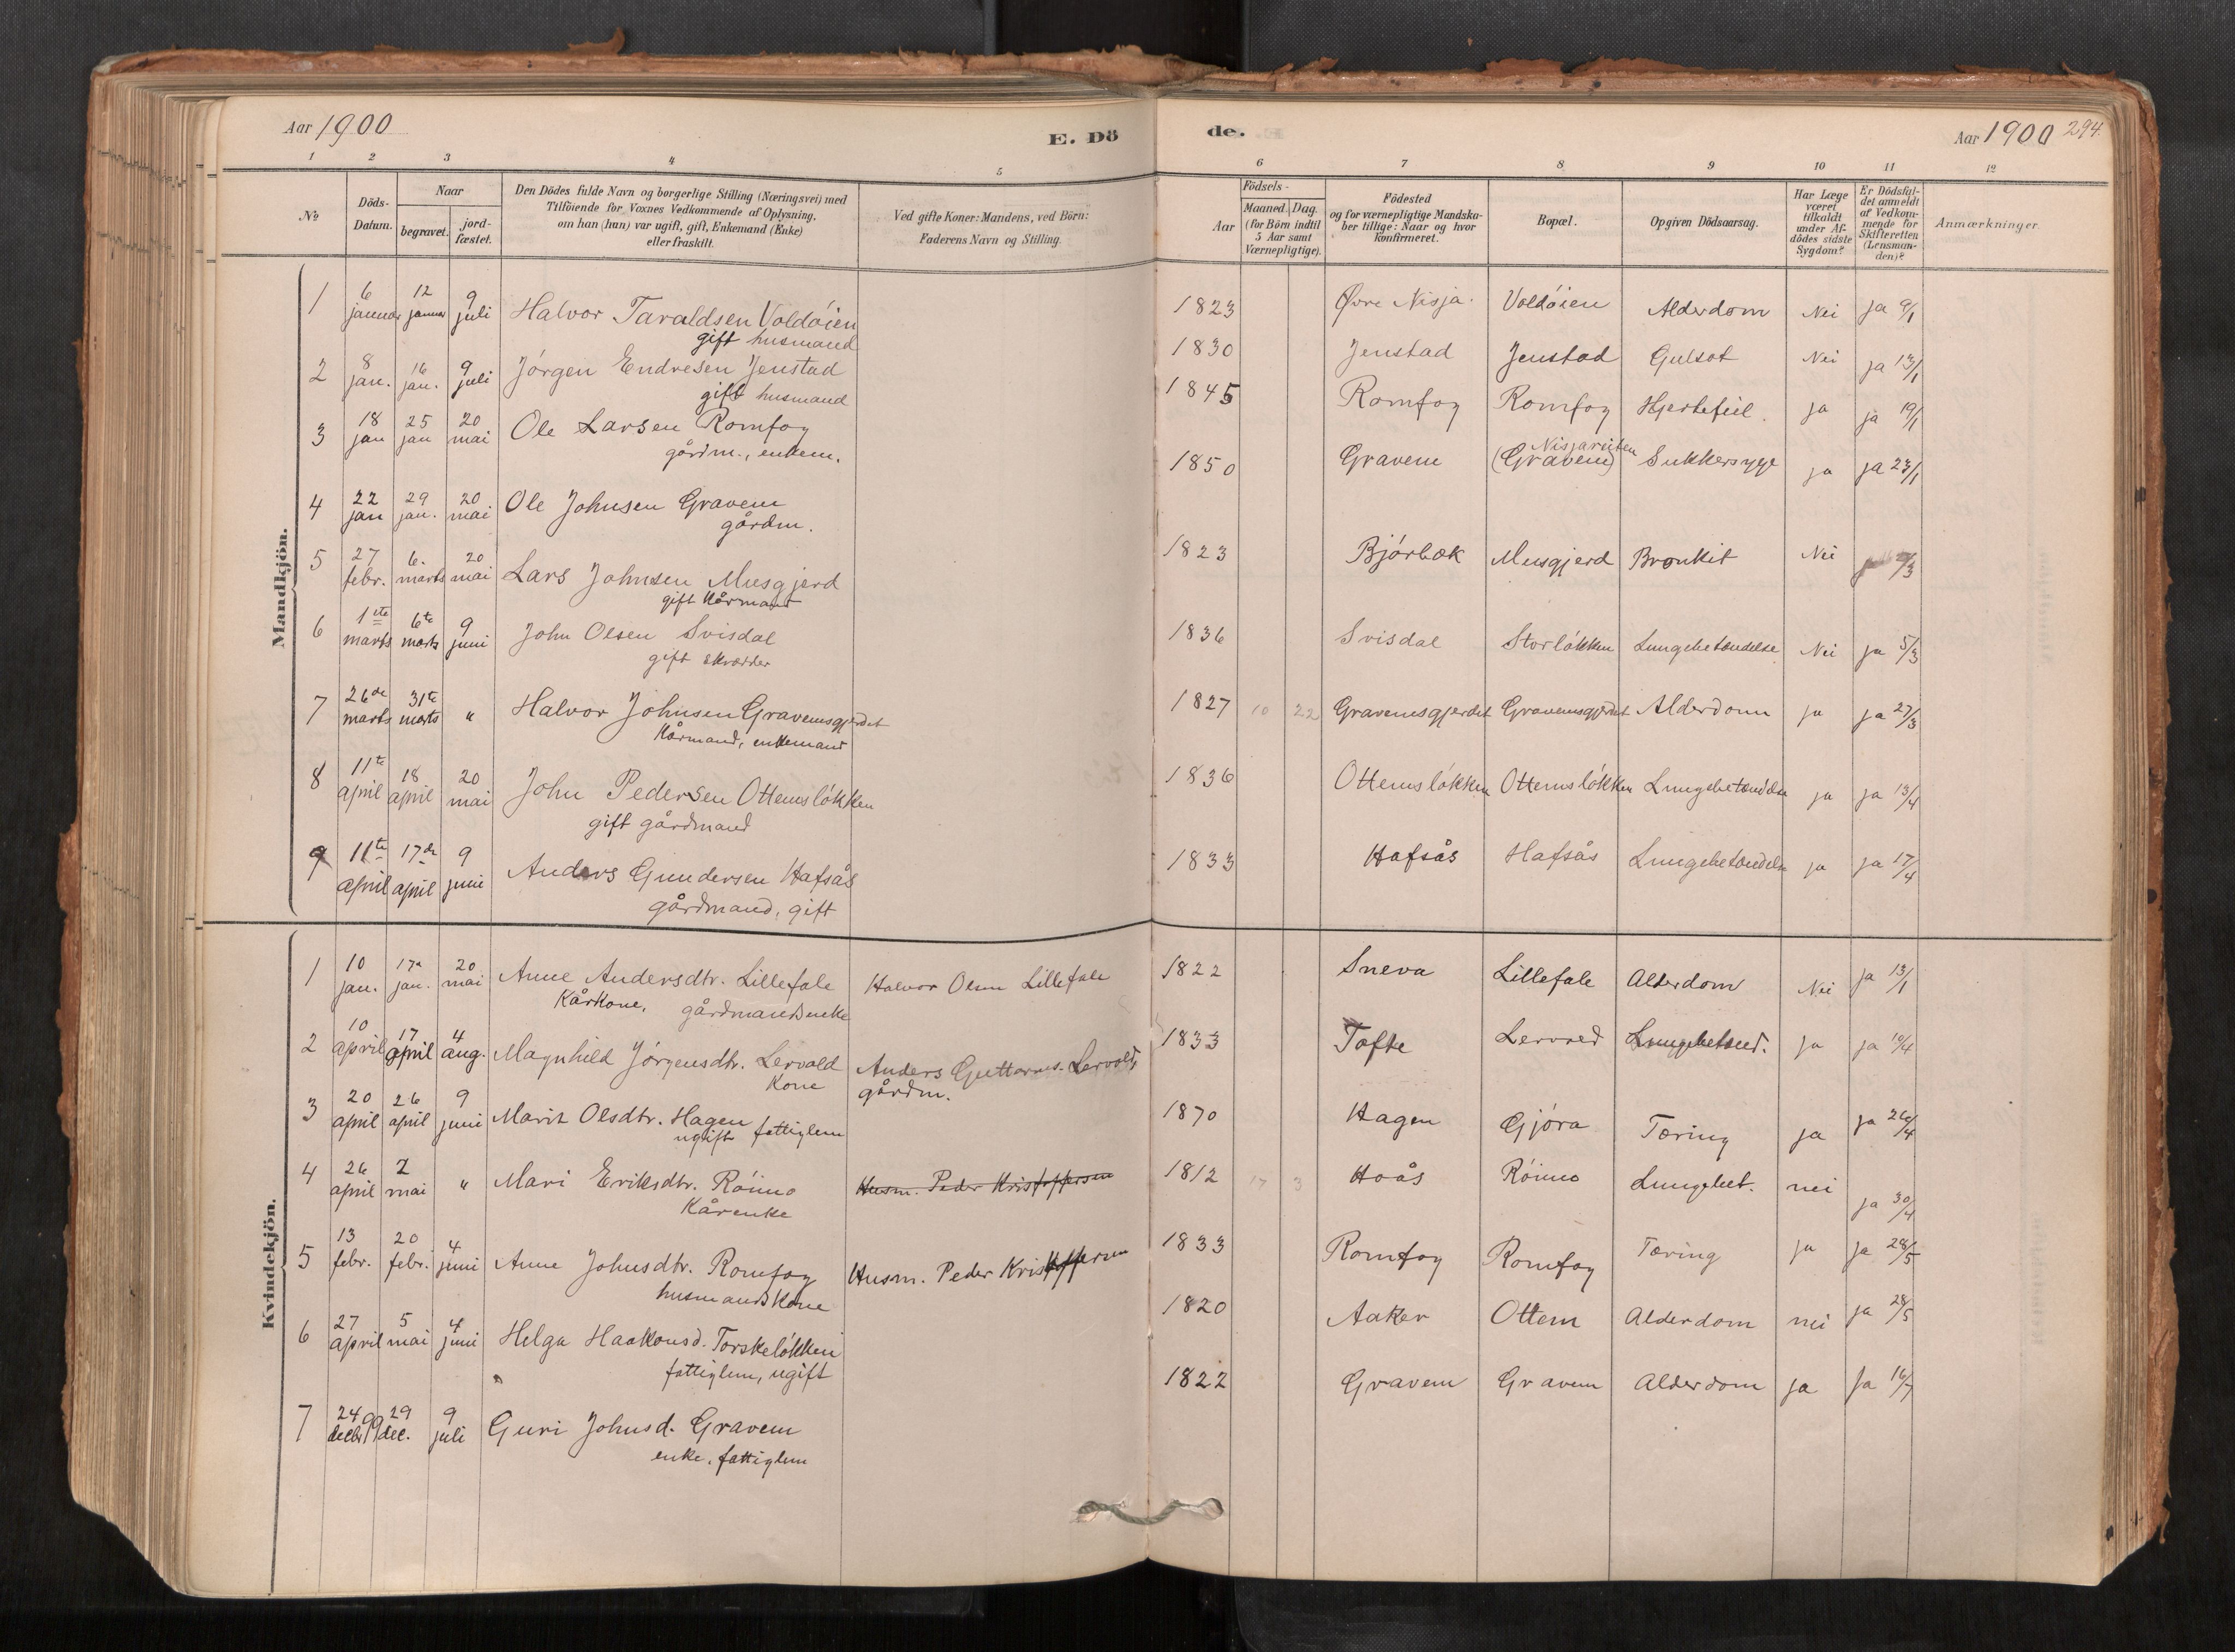 Aar 1900
E. Dö
de.
Aar 1900 294.
1 2 3 4 5 6 7 8 9 10 11 12
No
Döds-
Datum.
Naar
begravet.
jord-
fæstet.
Den Dödes fulde Navn og borgerlige Stilling (Næringsvei) med
Tilföiende for Voxnes Vedkommende af Oplysning,
om han (hun) var ugift, gift, Enkemand (Enke)
eller fraskilt.
Ved gifte Koner: Mandens, ved Börn:
Faderens Navn og Stilling.
Födsels-
Aar
Maaned. Dag.
(for Börn indtil
5 Aar samt
Værnepligtige).
Födested
og for værnepligtige Mandska-
ber tillige: Naar og hvor
konfirmeret.
Bopæl.
Opgiven Dödsaarsag.
Har Læge
været
tilkaldt
under Af-
dödes sidste
Sygdom?
Er Dödsfal-
det anmeldt
af Vedkom-
mende for
Skifteretten
(Lensman-
den)?
Anmærkninger.
Mandkjön.
1 6 januar 12 januar 9 juli Halvor Taraldsen Voldöien 1823 Øvre Nisja. Voldöien Alderdom Nei ja 9/1
gift husmand
2 8 jan. 16 jan. 9 juli Jörgen Endresen Jenstad 1830 Jenstad Jenstad Gulsot Nei ja 13/1
gift husmand
3 18 jan 25 jan 20 mai Ole Larsen Romfog 1845 Romfog Romfog Hjertefeil. ja ja 19/1
gårdm., enkem.
4 22 jan 29 jan. 20 mai Ole Johnsen Gravem 1850 Gravem Nisjareiten (Gravem) Sukkersyge ja ja 23/1
gårdm.
5 27 febr. 6. marts 20 mai Lars Johnsen Musgjerd 1823 Bjórbæk Musgjerd Bronkit Nei
gift Kårmand
6 1ste marts 6te marts 9 juni John Olsen Svisdal 1836 Svisdal Storlökken Lungebetændelse Nei ja 5/3
gift skrædder
7 26de marts 31te marts " Halvor Johnsen Gravemsgjerdet 1827 10 22 Gravemsgjerdet Gravemsgjerdet Alderdom ja ja 27/3
Kårmand, enkemand
8 11te april 18 april 20 mai John Pedersen Ottemslökken 1836 Ottemslökken Ottemslökken Lungebetændelse ja ja 13/4
gift gårdmand
9 11te april 17de april 9 juni Anders Gundersen Hafsås 1833 Hafsås Hafsås Lungebetændelse ja ja 17/4
gårdmand, gift
Kvindekjön.
1 10 jan. 17de jan. 20 mai Anne Andersdtr. Lillefale Halvor Olsen Lillefale 1822 Sneva Lillefale Alderdom Nei ja 13/1
Kårkone, gårdmandsenke
2 10 april 17 april 4 aug. Magnhild Jörgensdtr. Lervold Anders Guttorms. Lervold, 1833 Tofte Lervold Lungebetænd. ja ja 10/4
Kone gårdm.
3 20 april 26 april 9 juni Marit Olsdtr. Hagen 1870 Hagen Gjöra Tæring ja ja 26/4
ugift fattiglem
4 26 april 2 mai " Mari Eriksdtr. Röimo Husm. Peder Kristoffersen 1812 17 3 Hoås Röimo Lungebet. nei ja 30/4
Kårenke
5 13 febr. 20 febr. 4 juni Anne Johnsdtr. Romfog Husm. Peder Kristoffersen 1833 Romfog Romfog Tæring ja ja 28/5
husmandskone
6 27 april 5 mai 4 juni Helga Haakonsd. Torskelökken 1820 Aaker Ottem Alderdom nei ja 28/5
fattiglem, ugift
7 24 decbr 99 29 dec. 9 juli Guri Johnsd. Gravem 1822 Gravem Gravem Alderdom ja ja 16/7
enke, fattiglem